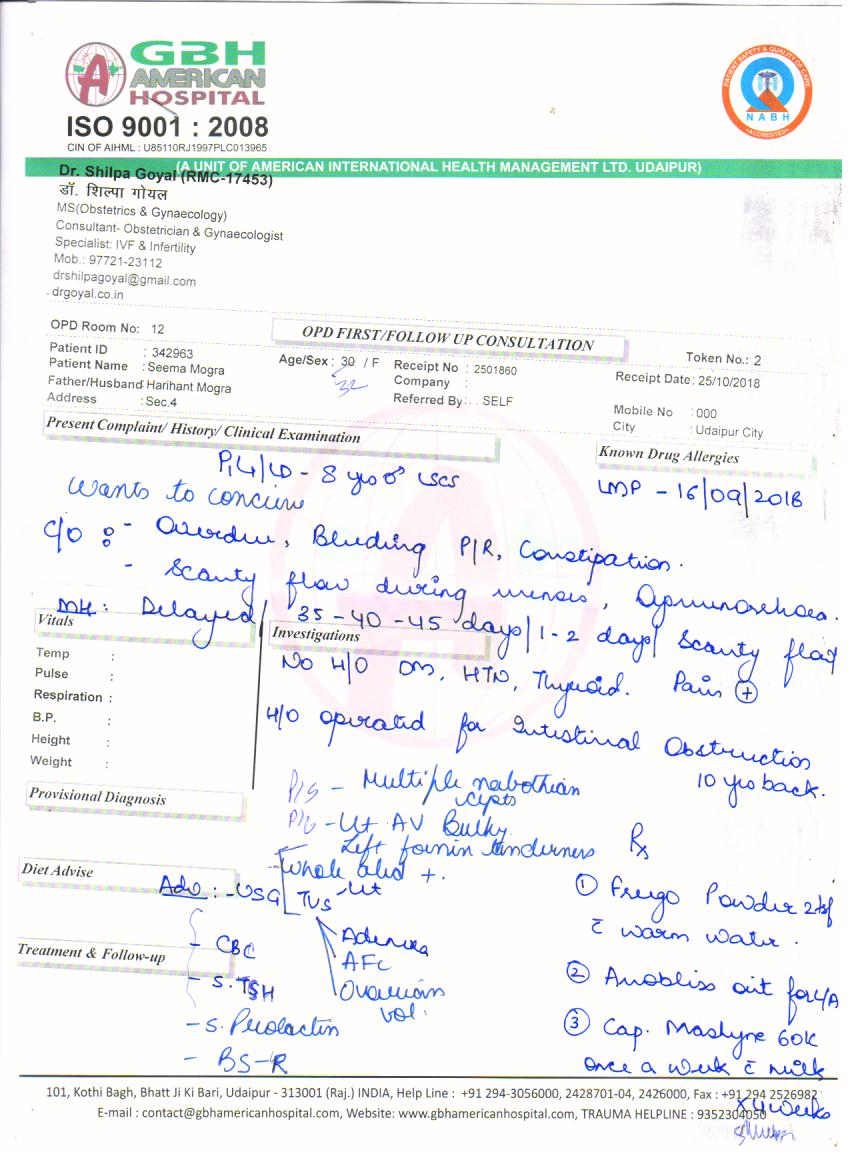 GBH
AMERICAN
HOSPITAL
ISO 9001 : 2008
CIN OF AIHML : U85110RJ1997PLC013965
PATIENT SAFETY & QUALITY OF CARE
NABH
ACCREDITED
(A UNIT OF AMERICAN INTERNATIONAL HEALTH MANAGEMENT LTD. UDAIPUR)
Dr. Shilpa Goyal (RMC-17453)
डॉ. शिल्पा गोयल
MS(Obstetrics & Gynaecology)
Consultant- Obstetrician & Gynaecologist
Specialist: IVF & Infertility
Mob.: 97721-23112
drshilpagoyal@gmail.com
drgoyal.co.in
OPD Room No: 12
OPD FIRST/FOLLOW UP CONSULTATION
Token No.: 2
Patient ID : 342963
Age/Sex : 30 / F
32
Receipt No : 2501860
Receipt Date: 25/10/2018
Patient Name : Seema Mogra
Company :
Father/Husband Harihant Mogra
Referred By: . . SELF
Mobile No : 000
Address : Sec.4
City : Udaipur City
Present Complaint/ History/ Clinical Examination
Known Drug Allergies
P1L1/LD - 8 yrs ♂ LSCS
LMP - 16/09/2018
Wants to concieve
C/O : - Overdue, Bleeding P/R, Constipation.
- Scanty flow during menses, Dysmenorrhoea.
MH: Delayed / 35-40-45 days / 1-2 days / Scanty flow
Vitals
Investigations
Temp :
Pulse :
Respiration :
B.P. :
Height :
Weight :
No H/O DM, HTN, Thyroid. Pain +
H/O operated for Intestinal Obstruction
10 yrs back.
P/S - Multiple nabothian
cysts
Provisional Diagnosis
- Ut AV Bulky
Left fornix tenderness
+.
Rx
Diet Advise
Adv : - USG
Whole abd
TVS - Ut
Adnexa
AFC
Ovarian
vol.
- CBC
Treatment & Follow-up
- S. TSH
- S. Prolactin
- BS-R
① Frego Powder 2tsf
c̄ warm water.
② Anobliss oint for L/A
③ Cap. Mashyne 60K
once a week c̄ milk
x 4 weeks
101, Kothi Bagh, Bhatt Ji Ki Bari, Udaipur - 313001 (Raj.) INDIA, Help Line : +91 294-3056000, 2428701-04, 2426000, Fax : +91 294 2526982
E-mail : contact@gbhamericanhospital.com, Website: www.gbhamericanhospital.com, TRAUMA HELPLINE : 9352304050